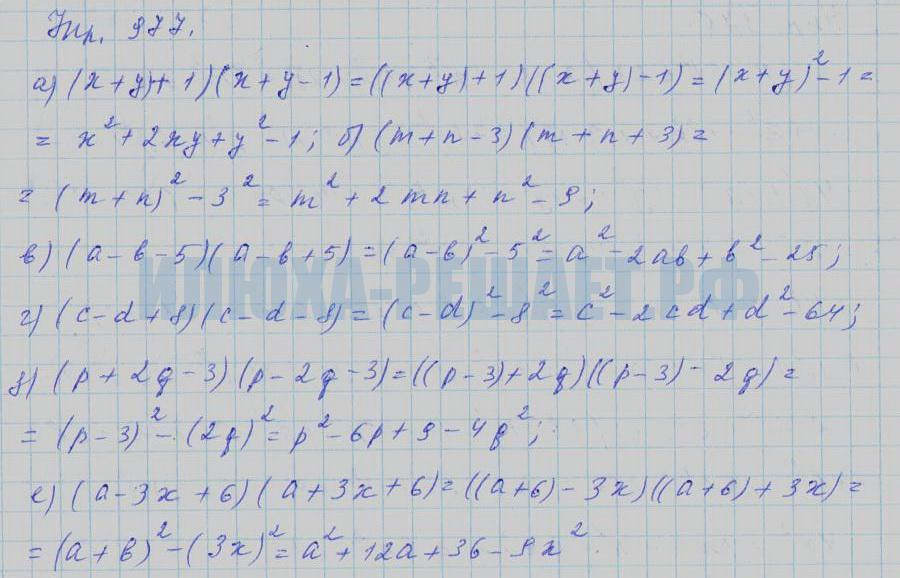 Упр. 977.
а) (x+y)+1)(x+y-1)=((x+y)+1)((x+y)-1)=(x+y)²-1=
= x²+2xy+y²-1; б) (m+n-3)(m+n+3)=
= (m+n)²-3²=m²+2mn+n²-9;
в) (a-b-5)(a-b+5)=(a-b)²-5²=a²-2ab+b²-25;
ИЛЮХА-РЕШАЕТ.РФ
г) (c-d+8)(c-d-8)=(c-d)²-8²=c²-2cd+d²-64;
д) (p+2q-3)(p-2q-3)=((p-3)+2q)((p-3)-2q)=
= (p-3)²-(2q)²=p²-6p+9-4q²;
е) (a-3x+6)(a+3x+6)=((a+6)-3x)((a+6)+3x)=
= (a+b)²-(3x)²=a²+12a+36-9x²